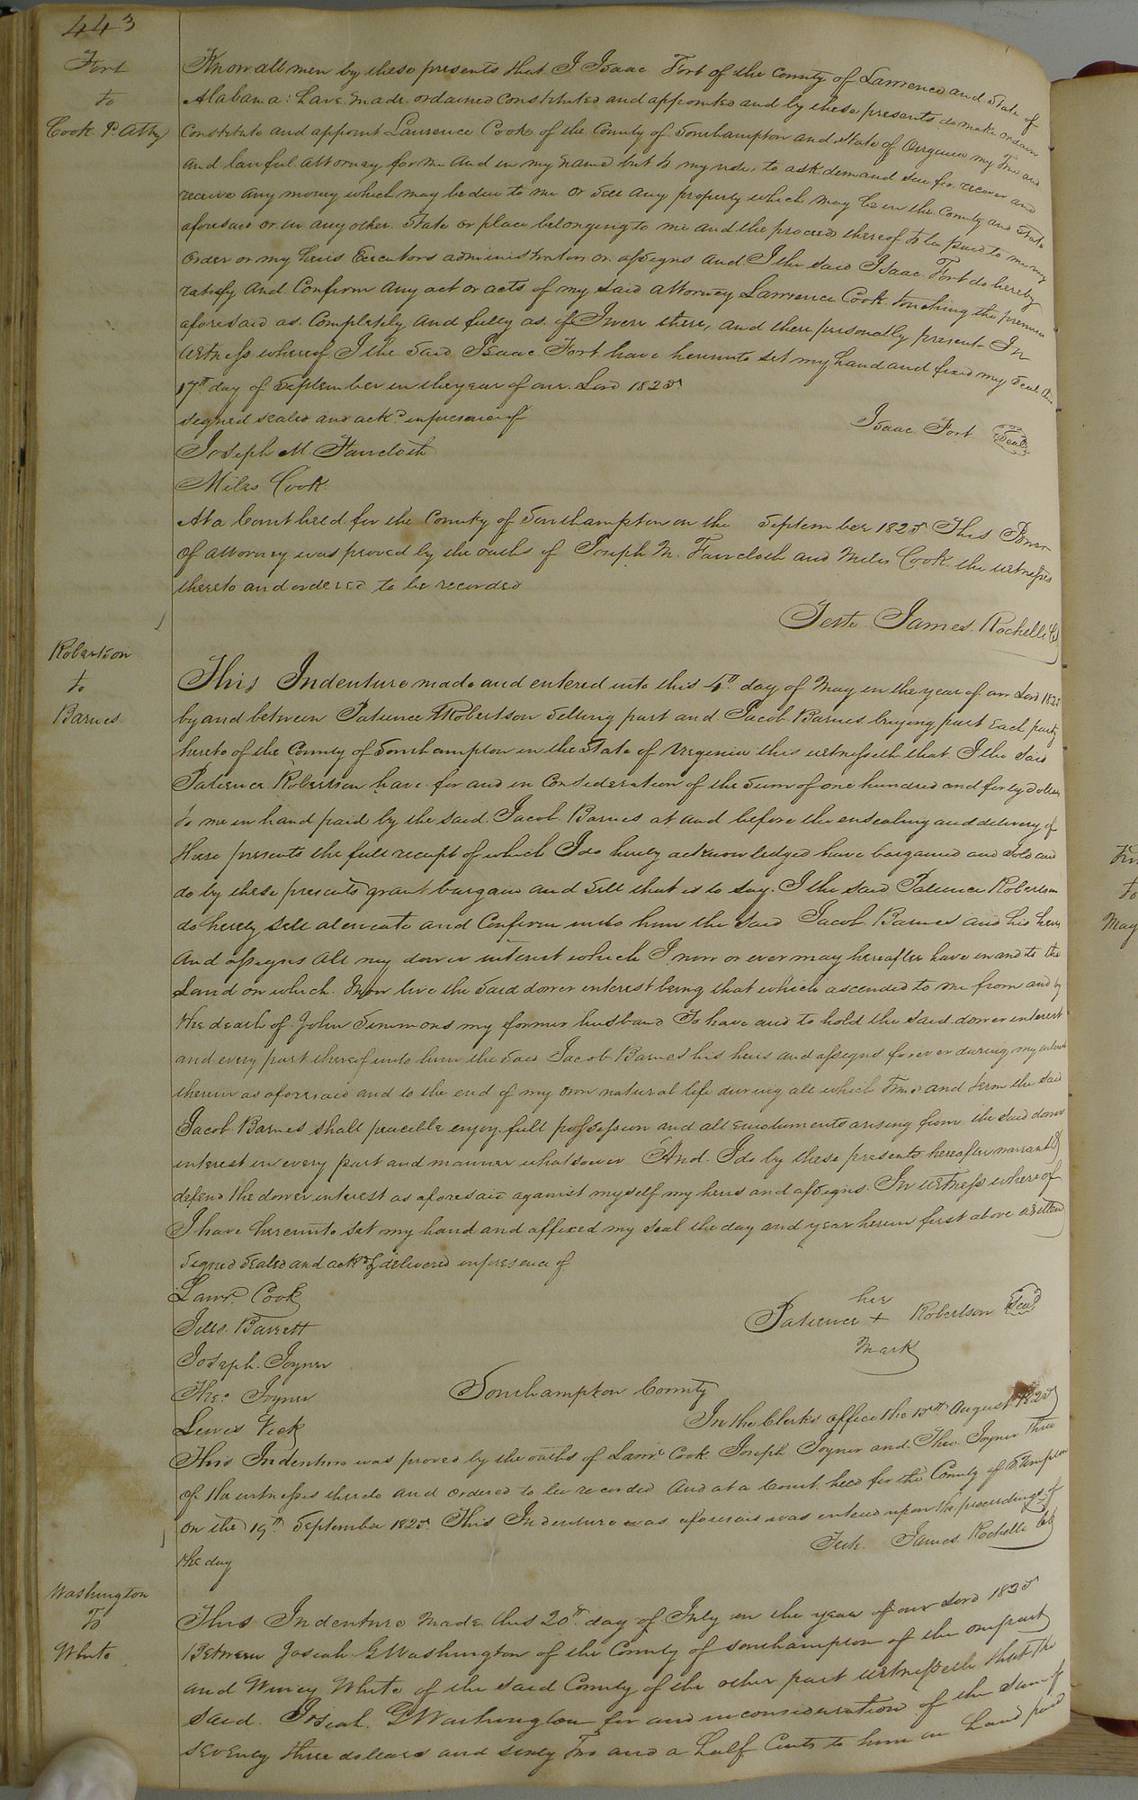 443
Fort
to
Cook P. Atty
Know all men by these presents that I Isaac Fort of the County of Lawrence and State of
Alabama: have made ordained Constituted and appointed and by these presents do make ordain
Constitute and appoint Lawrence Cook of the County of Southampton and State of Virginia my true and
and lawful attorney, for me and in my name but to my use, to ask demand sue for, recover and
receive any money which may be due to me or sell any property which may be in the County and State
aforesaid or in any other State or place belonging to me and the proceeds thereof to be paid to me my
order or my heirs Executors administrators or assigns and I the said Isaac Fort do hereby
ratify and Confirm any act or acts of my said attorney Lawrence Cook touching the premises
aforesaid as Completely and fully as if I were there, and there personally present In
witness whereof I the said Isaac Fort have hereunto set my hand and fixed my seal this
17th day of September in the year of our Lord 1825
signed sealed and ackd in presence of
Isaac Fort Seal
Joseph M Fancloth
Miles Cook
At a Court held for the County of Southampton on the September 1825 This Power
of attorney was proved by the oaths of Joseph M. Fancloth and Miles Cook the witnesses
thereto and ordered to be recorded
Teste James Rochelle Ck
Robertson
to
Barnes
This Indenture made and entered into this 4th day of May in the year of our Lord 1825
by and between Patience Robertson selling part and Jacob Barnes buying part each party
hereto of the County of Southampton in the State of Virginia this witnesseth that I the said
Patience Robertson have for and in Consideration of the Sum of one hundred and forty dollars
to me in hand paid by the said Jacob Barnes at and before the ensealing and delivery of
these presents the full receipt of which I do hereby acknowledged have bargained and sold and
do by these presents grant bargain and sell that is to say. I the said Patience Robertson
do hereby sell alienate and Confirm unto him the said Jacob Barnes and his heirs
and assigns all my dower interest which I now or ever may hereafter have in and to the
Land on which I now live the said dower interest being that which ascended to me from and by
the death of John Simmons my former husband To have and to hold the said dower interest
and every part thereof unto him the said Jacob Barnes his heirs and assigns forever during my interest
therein as aforesaid and to the end of my own natural life during all which time and term the said
Jacob Barnes shall peacible enjoy full possession and all emoluments arising from the said dower
interest in every part and manner whatsoever And I do by these presents hereafter warrant &
defend the dower interest as aforesaid against myself my heirs and assigns. In witness whereof
I have hereunto set my hand and affixed my seal the day and year herein first above written
Signed Sealed and ackd & delivered in presence of
Lawr. Cook
Jills. Barrett
her
Patience + Robertson Seal
mark
Joseph. Joyner
Theo. Joyner
Lewis Vick
Southampton County
In the Clerks office the 15th August 1825
This Indenture was proved by the oaths of Lawr Cook Joseph Joyner and Theo. Joyner three
of the witnesses thereto and ordered to be recorded and at a Court held for the County of S.hampton
on the 19th September 1825. This Indenture as aforesaid was entered upon the proceedings of
the day
Teste James Rochelle Clk
Washington
To
White
This Indenture made this 20th day of July in the year of our Lord 1825
Between Josiah G Washington of the County of Southampton of the one part
and Winney White of the said County of the other part witnesseth that the
said Josiah G Washington for and in consideration of the sum of
seventy three dollars and sixty two and a half Cents to him in hand paid
to
May